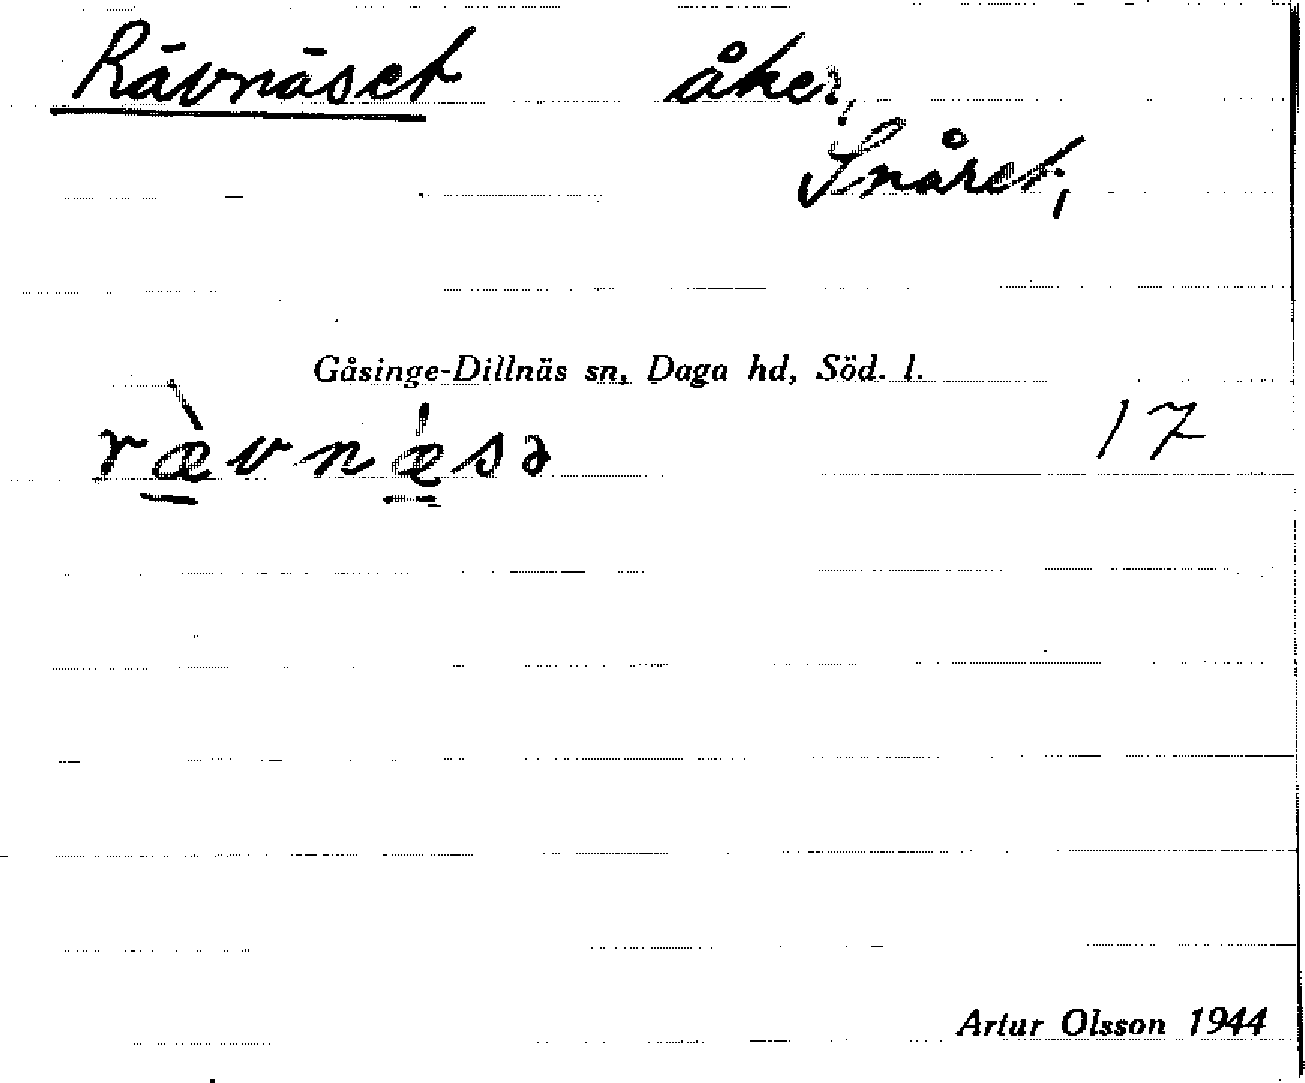 Rävnäset åker,
Snåret,
Gåsinge-Dillnäs sn, Daga hd, Söd. l.
ræ̀vnǽsə 17
Artur Olsson 1944